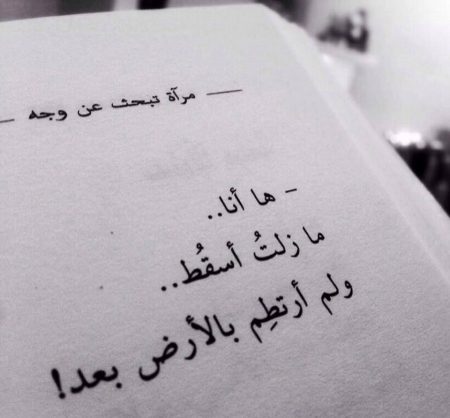 — مرآة تبحث عن وجه —
- ها أنا..
ما زلتُ أسقُط..
ولم أرتطِم بالأرض بعد!